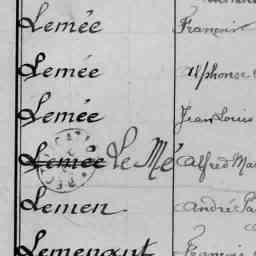 Lemée François
Lemée Alphonse
Lemée Jean Louis
Lemée Le Mé Alfred
Lemen André
Lemenant François